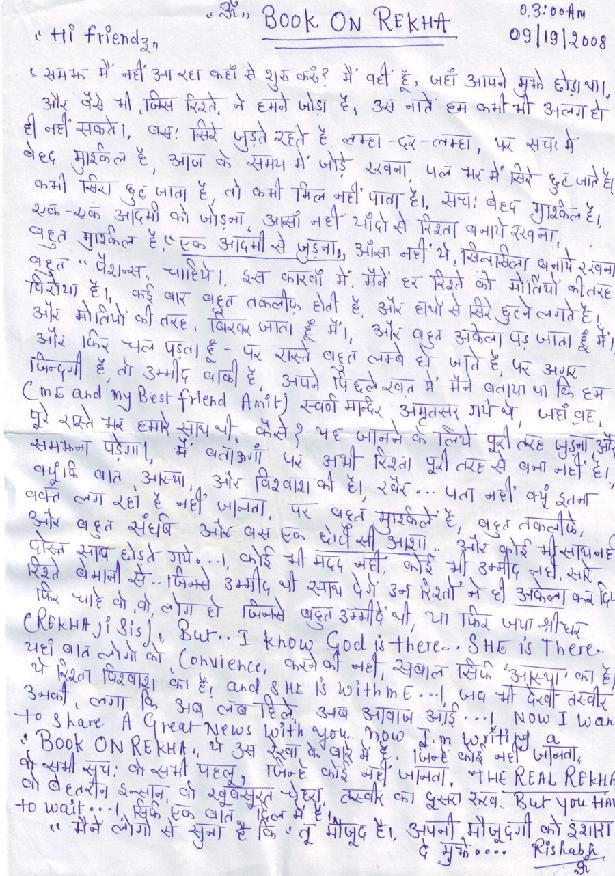 "ॐ" BOOK ON REKHA
03:00Am
09/19/2008
"Hi friendz"
"समझ में नहीं आ रहा कहाँ से शुरू करूँ? मैं वहीं हूँ, जहाँ आपने मुझे छोड़ा था।,
और वैसे भी जिस रिश्ते, ने हमने जोड़ा है, उस नाते हम कभी भी अलग हो
ही नहीं सकते।, बस! सिरे जुड़ते रहते है लम्हा-दर-लम्हा, पर सच! में
बेहद मुश्किल है, आज के समय में जोड़े रखना, पल भर में सिरे छुट जाते है।
कभी सिरा छुट जाता है, तो कभी मिल नहीं पाता है।, सच! बेहद मुश्किल है।,
एक-एक आदमी को जोड़ना, आसाँ नहीं यादों से रिश्ता बनाये रखना,
बहुत मुश्किल है, "एक आदमी से जुड़ना", आँसा नहीं ये, सिलसिला बनाये रखना
बहुत "पैशन्स, चाहिये।, इस कारवाँ में, मैंने हर रिश्ते को मोतियों की तरह
पिरोया है।, कई बार बहुत तकलीफ होती है, और हाथों से सिरे छुटने लगते है।,
और मोतियों की तरह, बिखर जाता हूँ मैं।, और बहुत अकेला पड़ जाता हूँ मैं।
और फिर चल पड़ता हूँ - पर रास्ते बहुत लम्बे हो जाते है, पर अगर
जिन्दगी है, तो उम्मीद बाकी है, अपने पिछले खत में मैंने बताया था कि हम
(me and my Best friend Amit) स्वर्ण मन्दिर अमृतसर गये थे, जहाँ वह,
पूरे रास्ते भर हमारे साथ थी, कैसे? यह जानने के लिये पूरी तरह जुड़ना और
समझना पड़ेगा।, मैं बताऊगाँ पर अभी रिश्ता पूरी तरह से बना नहीं है।,
क्यूंकि बात, आस्था, और विश्वाश की है।, खैर... पता नहीं क्यूं इतना
वक्त लग रहा है नहीं जानता, पर बहुत मुश्किलें है, बहुत तकलीफे,
और बहुत संघर्ष और बस एक छोटी सी आशा.. और कोई भी साथ नहीं
दोस्त साथ छोडते गये...।, कोई भी मदद नहीं, कोई भी उम्मीद नहीं, सारे
रिश्ते बेमानी से... जिनसे उम्मीद थी साथ देगें उन रिश्तों ने ही अकेला कर दिया
फिर चाहे वो, वो लोग हो जिनसे बहुत उम्मीदे थी, या फिर जया श्रीधर
(REKHA ji Sis)., But.. I know God is there... SHE is There..
यहाँ बात लोगों को, Convience, करने की नहीं, सवाल सिर्फ "आस्था" का है,
ये रिश्ता विश्वाश का है, and SHE IS With ME...।, जब भी देखी तस्वीर
उनकी, लगा कि अब लब हिले, अब आवाज आई...।, NOW I Want
to share A Great News with you, now I'm writing a
"BOOK ON REKHA", ये उस रेखा के बारे में है, जिन्हें कोई नहीं जानता,
वो सभी सच! वो सभी पहलू, जिन्हें कोई नहीं जानता, "THE REAL REKHA
वो बेहतरीन इन्सान, वो खूबसूरत चेहरा, तस्वीर का दुसरा रूख, But you HAVE
to wait...।, सिर्फ एक बात दिल में है।,
"मैंने लोगों से सुना है कि "तू मौजूद है।, अपनी मौजूदगी का इशारा
दे मुझे.... Rishabh
ॐ